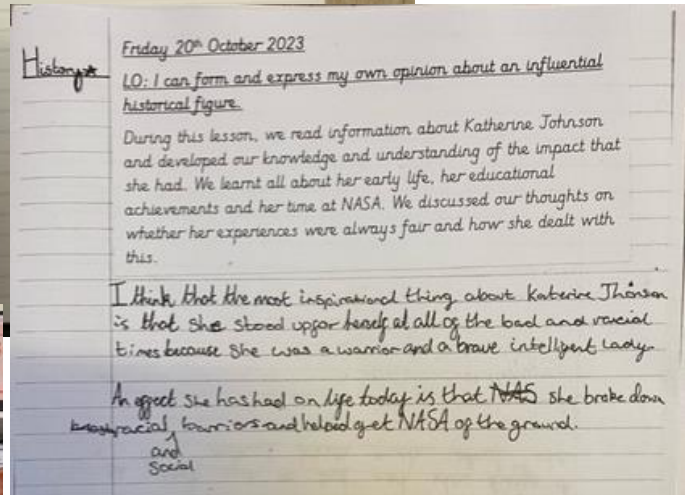 History
Friday 20th October 2023
LO: I can form and express my own opinion about an influential
historical figure.
During this lesson, we read information about Katherine Johnson
and developed our knowledge and understanding of the impact that
she had. We learnt all about her early life, her educational
achievements and her time at NASA. We discussed our thoughts on
whether her experiences were always fair and how she dealt with
this.
I think that the most inspirational thing about Katerine Jhonson
is that she stood up for herself at all of the bad and racial
times because she was a warrior and a brave intelligent lady.
An effect she has had on life today is that NAS she broke down
racial, barriors and helped get NASA of the ground.
and
Social